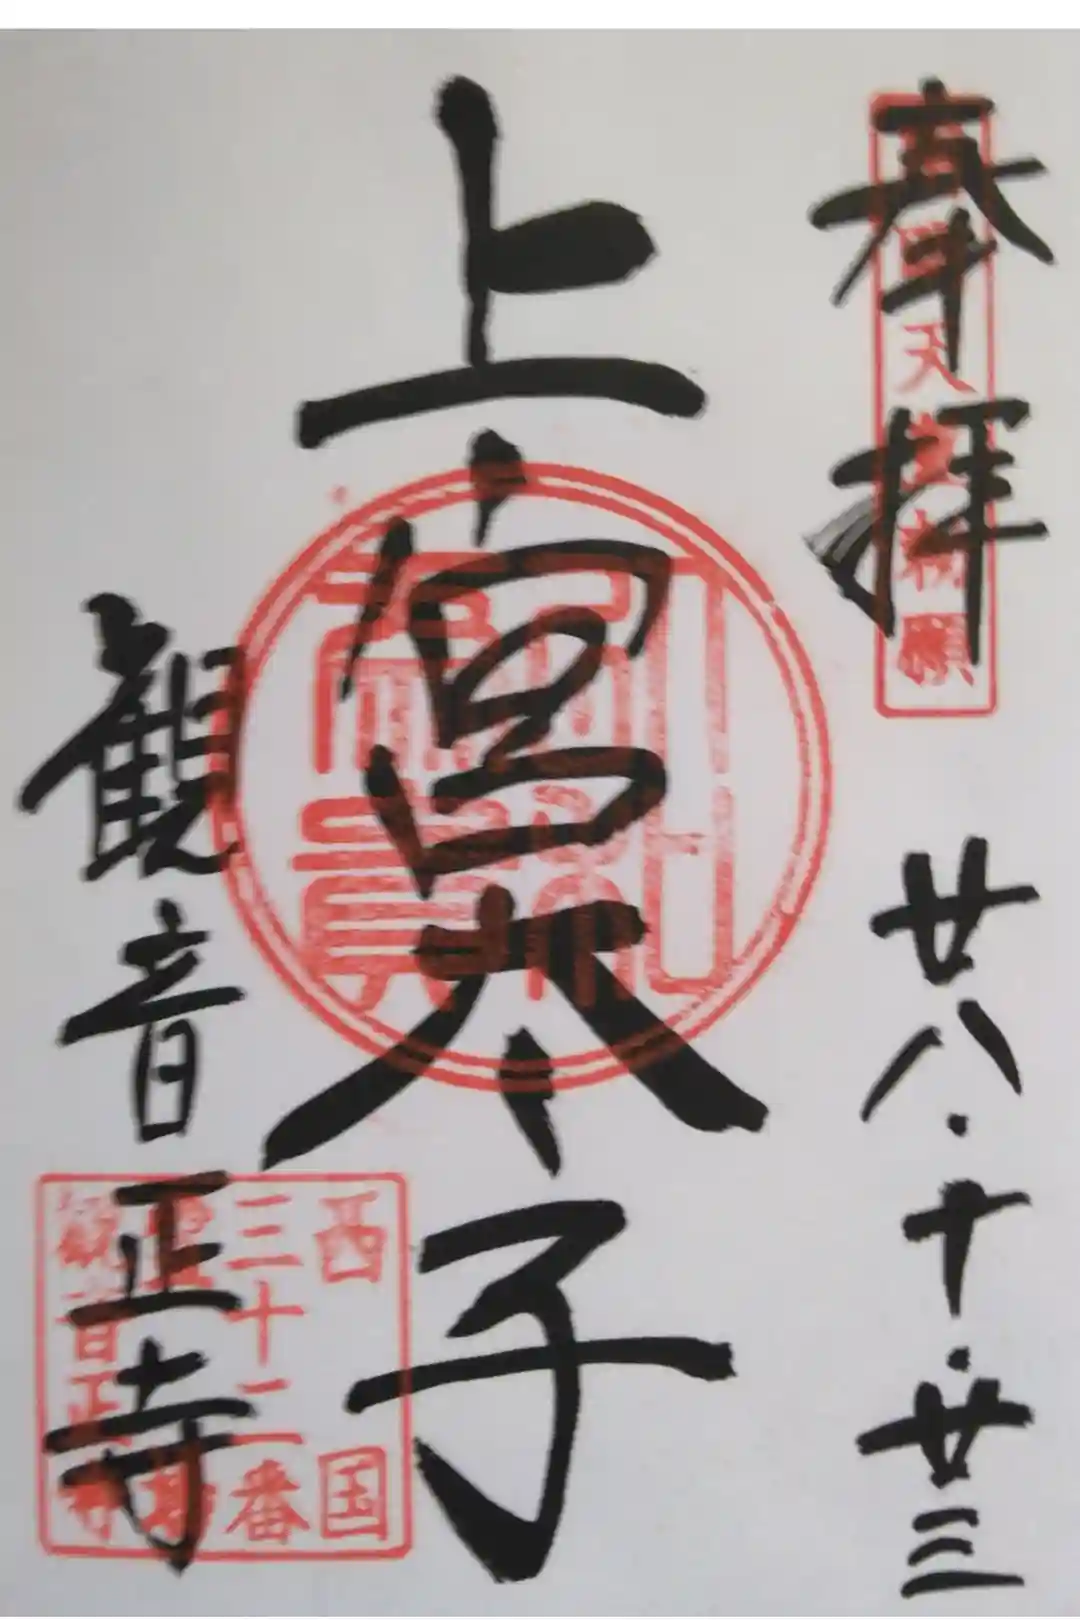 奉拝 廿八・十・廿三
天皇勅願
上宮太子
観音正寺
西国
三十二番
霊場
観音正寺